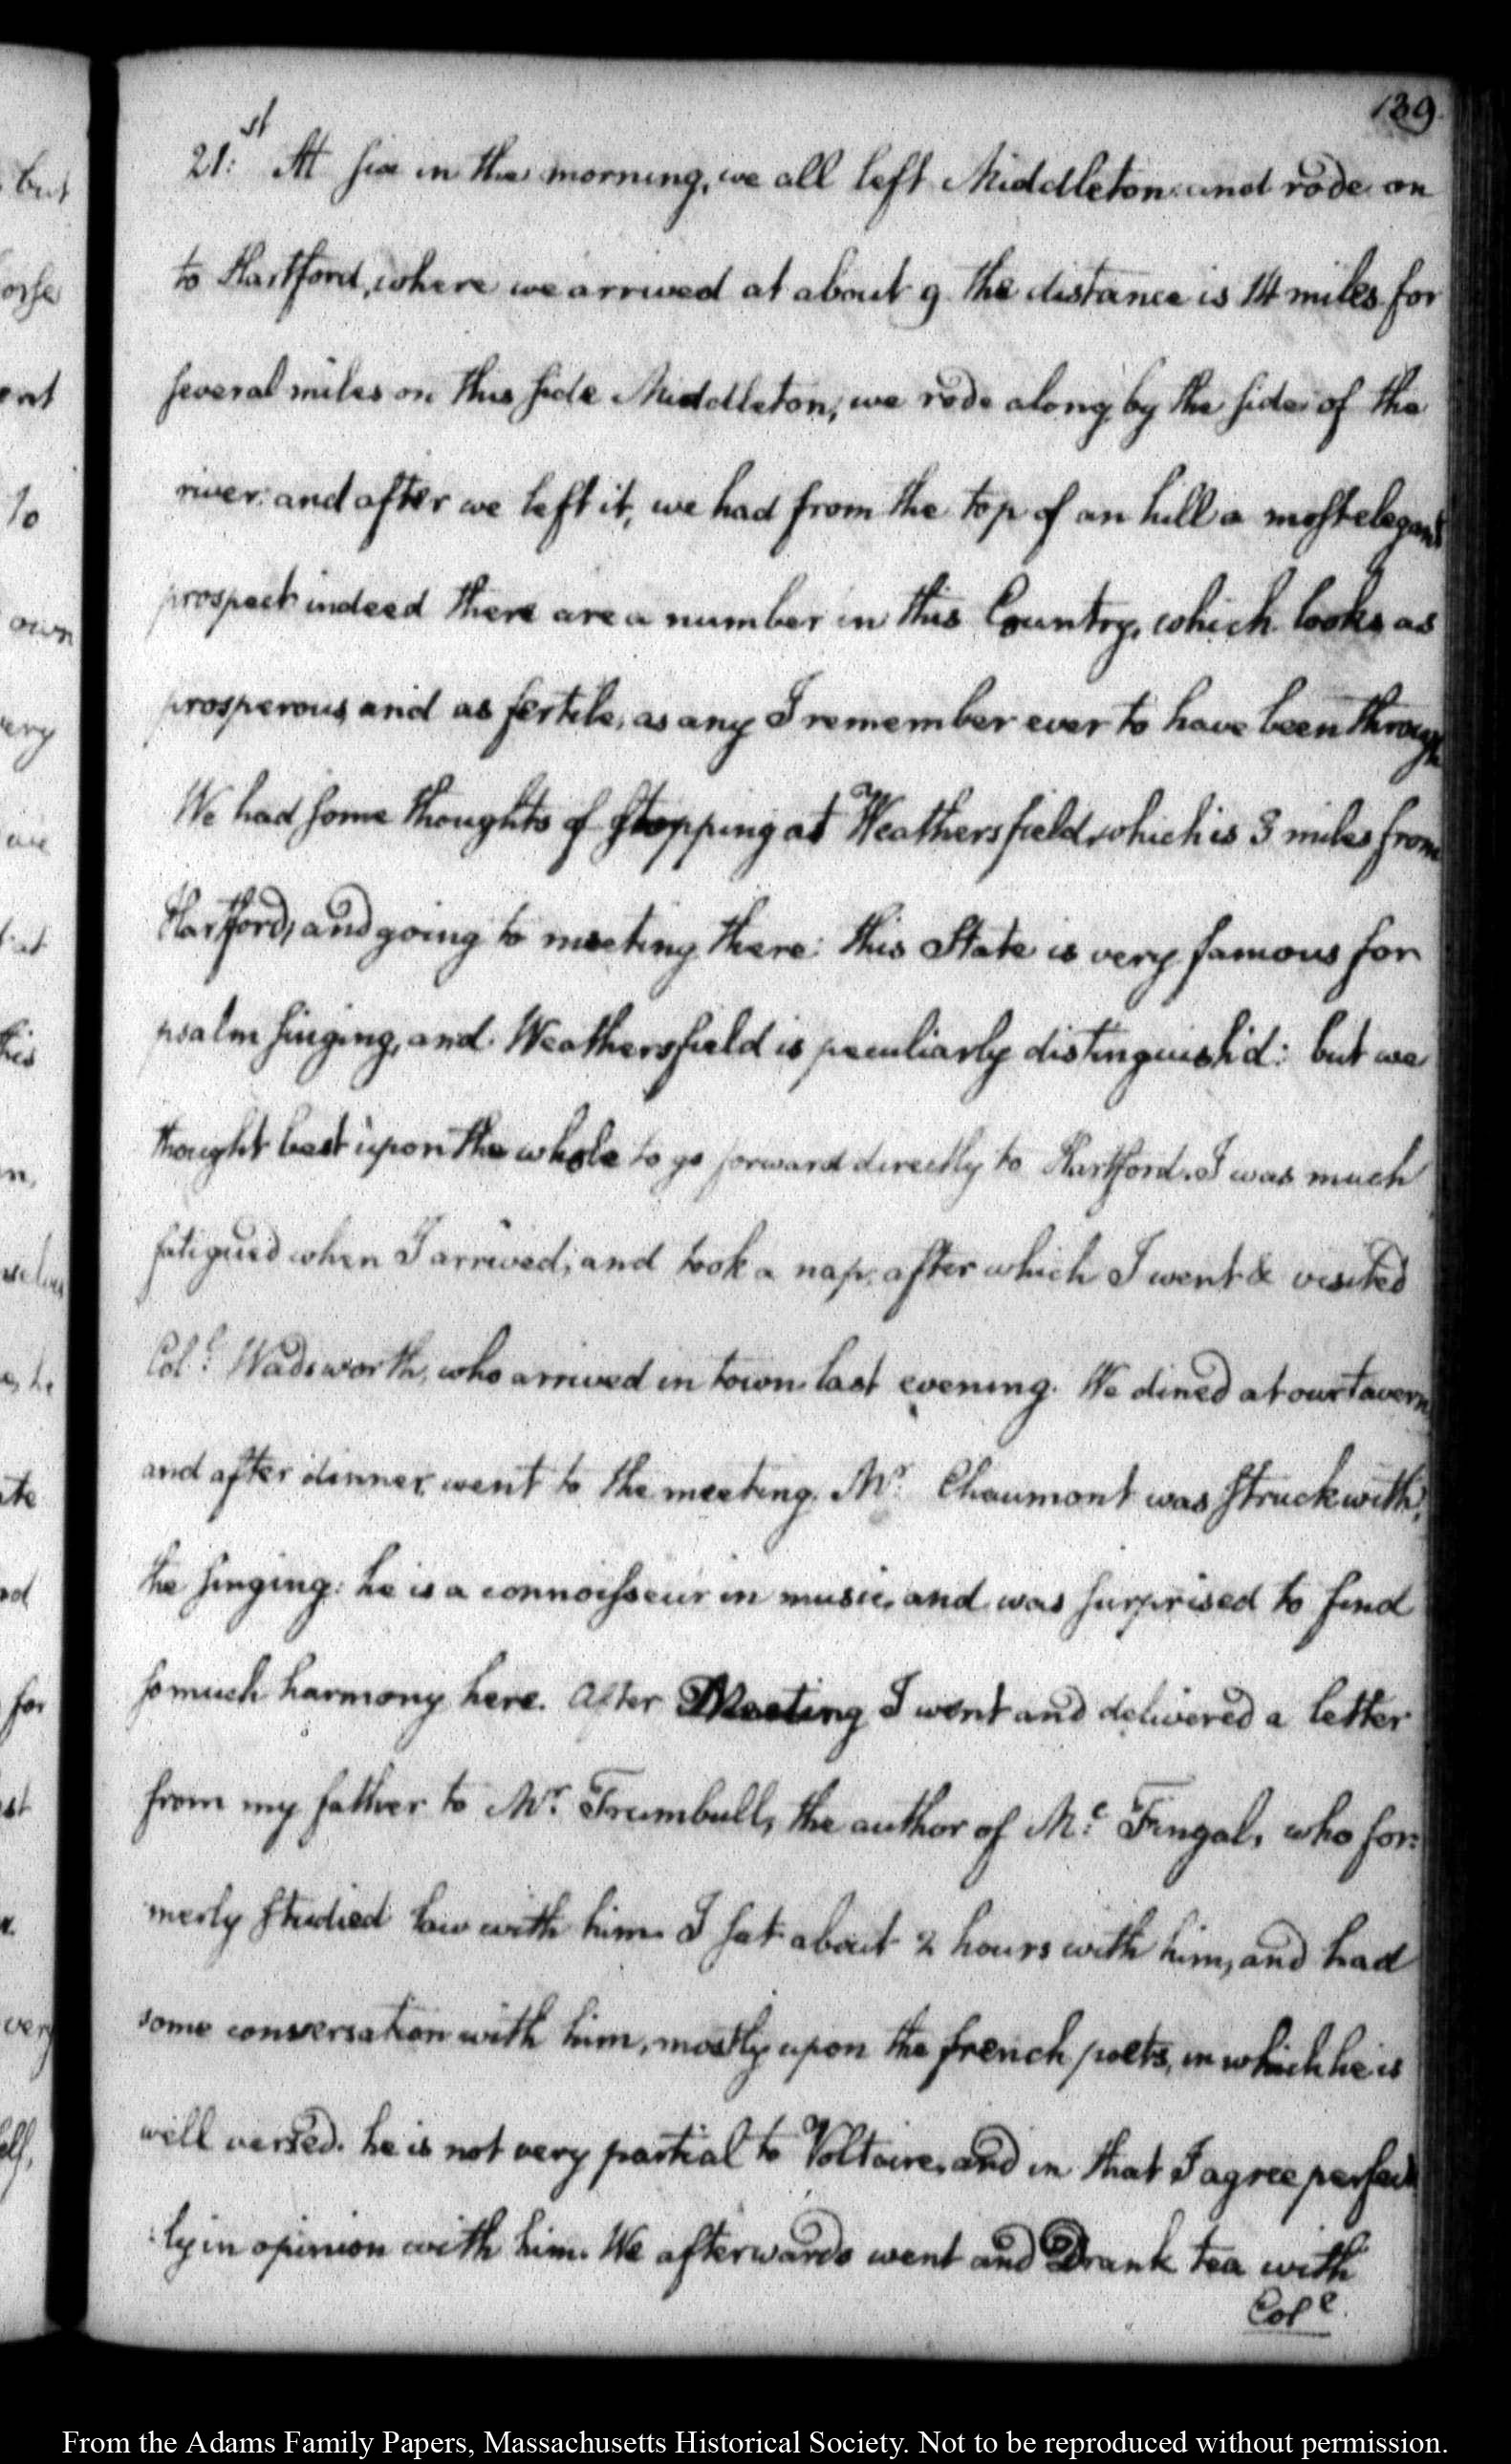 139.
21:st At six in the morning, we all left Middleton and rode on
to Hartford, where we arrived at about 9. the distance is 14 miles for
several miles on this side Middleton, we rode along by the side of the
river: and after we left it, we had from the top of an hill a most elegant
prospect indeed there are a number in this Country, which looks as
prosperous and as fertile, as any I remember ever to have been through
We had some thoughts of stopping at Weathersfield, which is 3 miles from
Hartford, and going to meeting there: this State is very famous for
psalm singing, and Weathersfield is peculiarly distinguish'd: but we
thought best upon the whole to go forward directly to Hartford. I was much
fatigued when I arrived, and took a nap, after which I went & visited
Col:l Wadsworth, who arrived in town last evening. We dined at our tavern,
and after dinner, went to the meeting. Mr. Chaumont was struck with,
the singing: he is a connoisseur in music, and was surprised to find
so much harmony here. After Meeting I went and delivered a letter
from my father to Mr. Trumbull, the author of M:c Fingal, who for:
merly studied law with him. I sat about 2 hours with him, and had
some conversation with him, mostly upon the french poets, in which he is
well versed. he is not very partial to Voltaire, and in that I agree perfect
:ly in opinion with him. We afterwards went and Drank tea with
Col:l
but
to
own
very
for
very
From the Adams Family Papers, Massachusetts Historical Society. Not to be reproduced without permission.